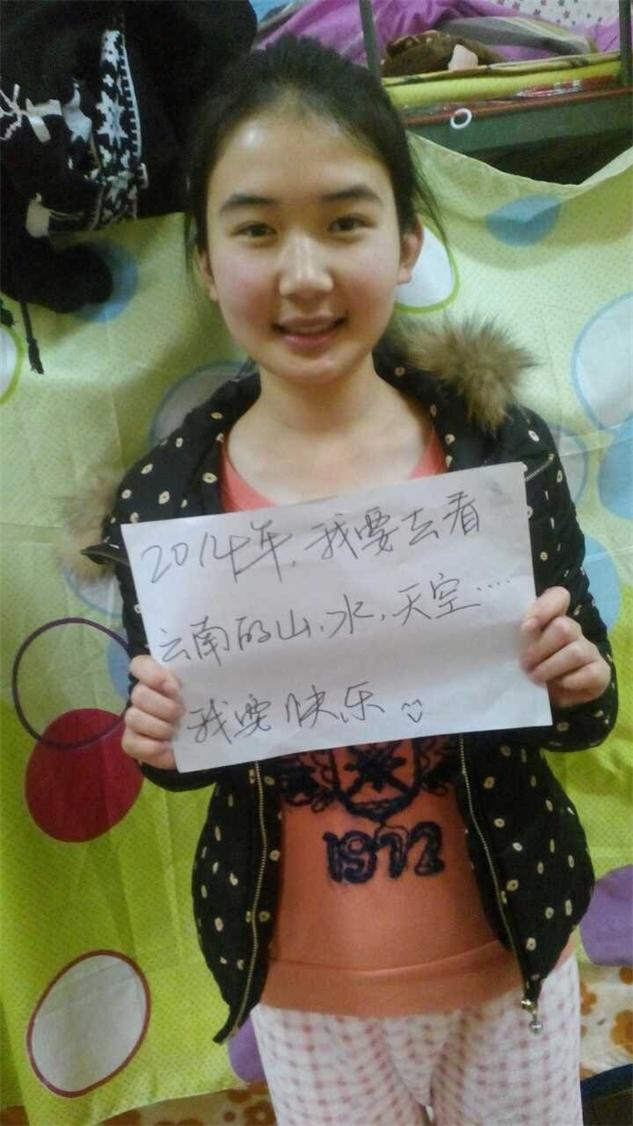 2014年,我要去看
云南的山,水,天空……
我要快乐
1972